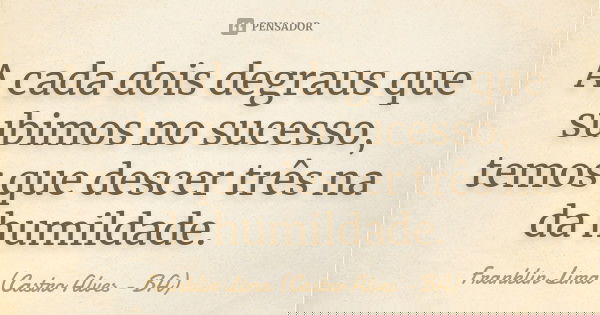 PENSADOR
A cada dois degraus que
subimos no sucesso,
temos que descer três na
da humildade.
Franklin Lima (Castro Alves - BA)